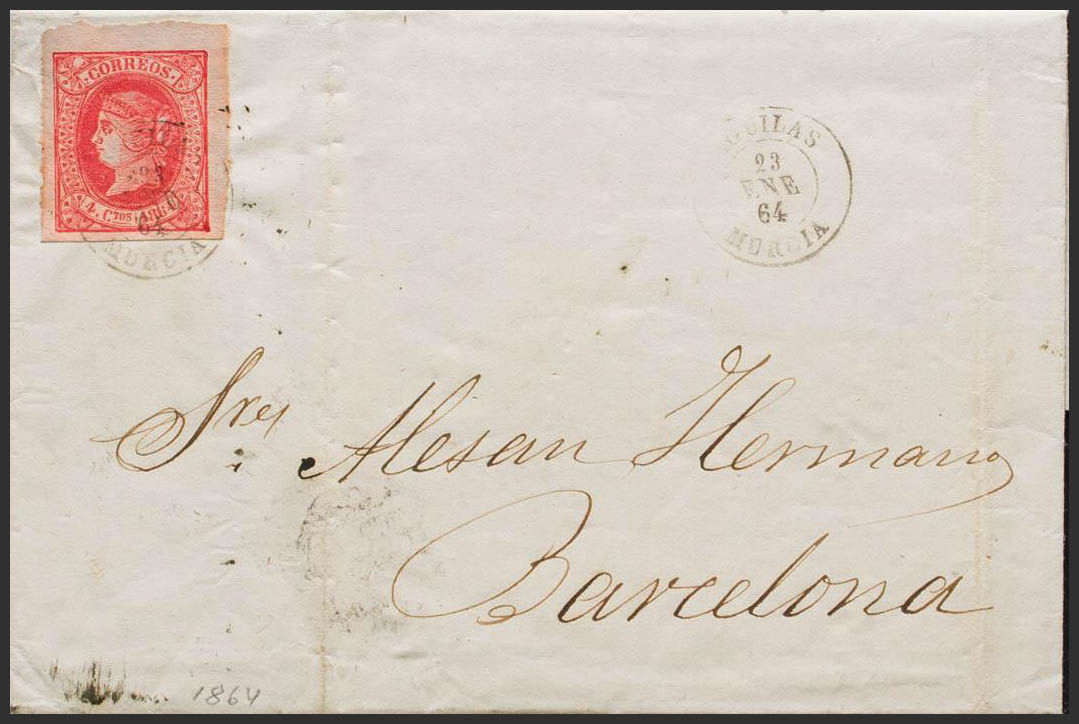 CORREOS
4 Ctos
64
MURCIA
GUILAS
23
ENE
64
MURCIA
Sres Alesan Hermano
Barcelona
1864